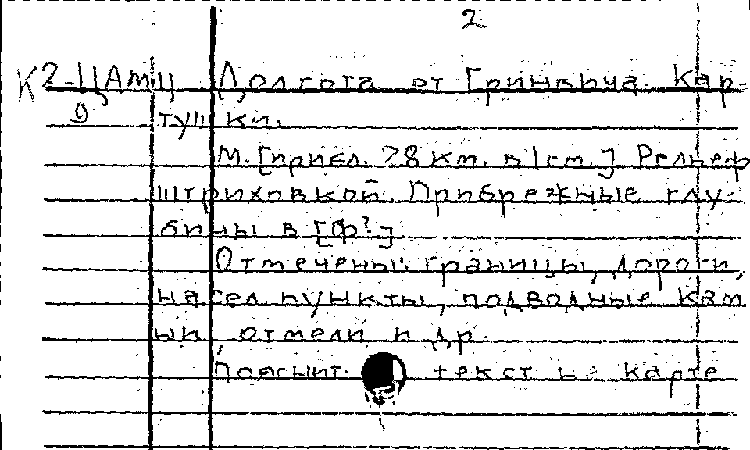 2
К2-ЦАмц Долгота от Гринвича. Кар-
9 тушки.
М. [прибл. 28 км. в 1 см.] Рельеф
штриховкой. Прибрежные глу-
бины в [ф?]
Отмечены: границы, дороги,
насел. пункты, подводные кам
ни, отмели и др.
Пояснит. текст на карте